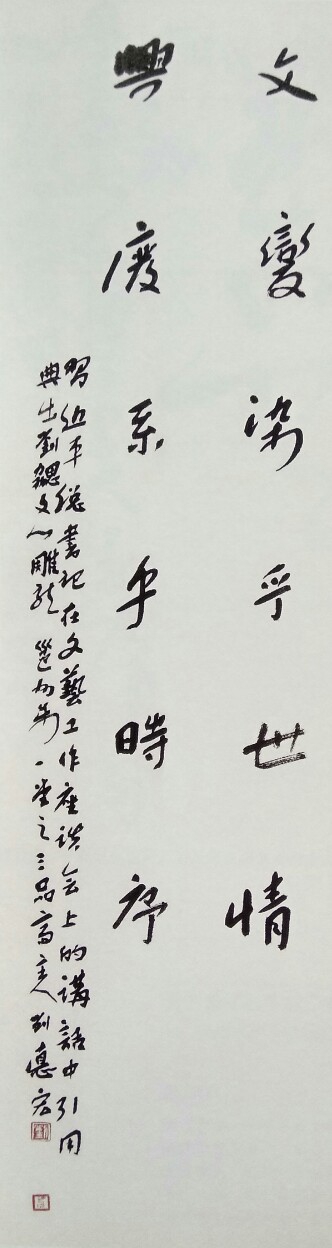 文變染乎世情
興廢系乎時序
習近平總書記在文藝工作座談會上的講話中引用
典出劉勰文心雕龍 萬一堂之三品齋主人劉惠宏